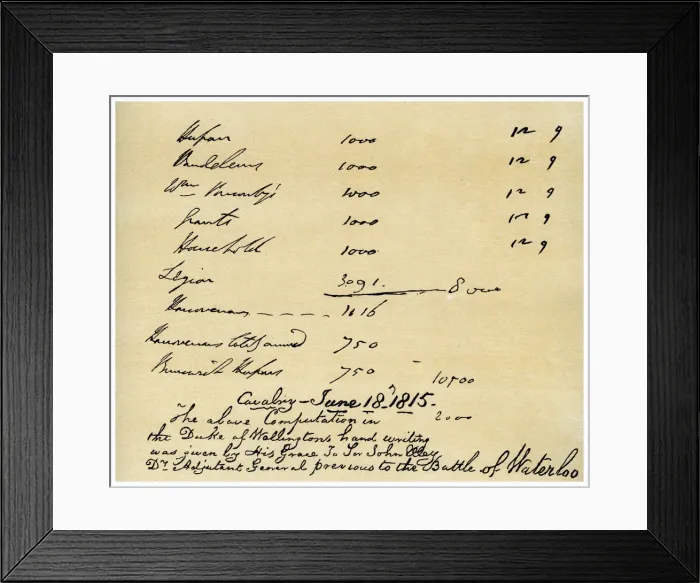 Hussars 1000 12 9
Vandeleurs 1000 12 9
Wm Ponsonby's 1000 12 9
Grants 1000 12 9
Household 1000 12 9
Legion 3091. 8000
Hanoverians 1616
Hanoverians 750
Brunswick Hussars 750 10500
Cavalry - June 18, 1815.
The above Computation in 2000
the Duke of Wellingtons hand writing
was given by His Grace To Sir John Elley
Dy. Adjutant General previous to the Battle of Waterloo